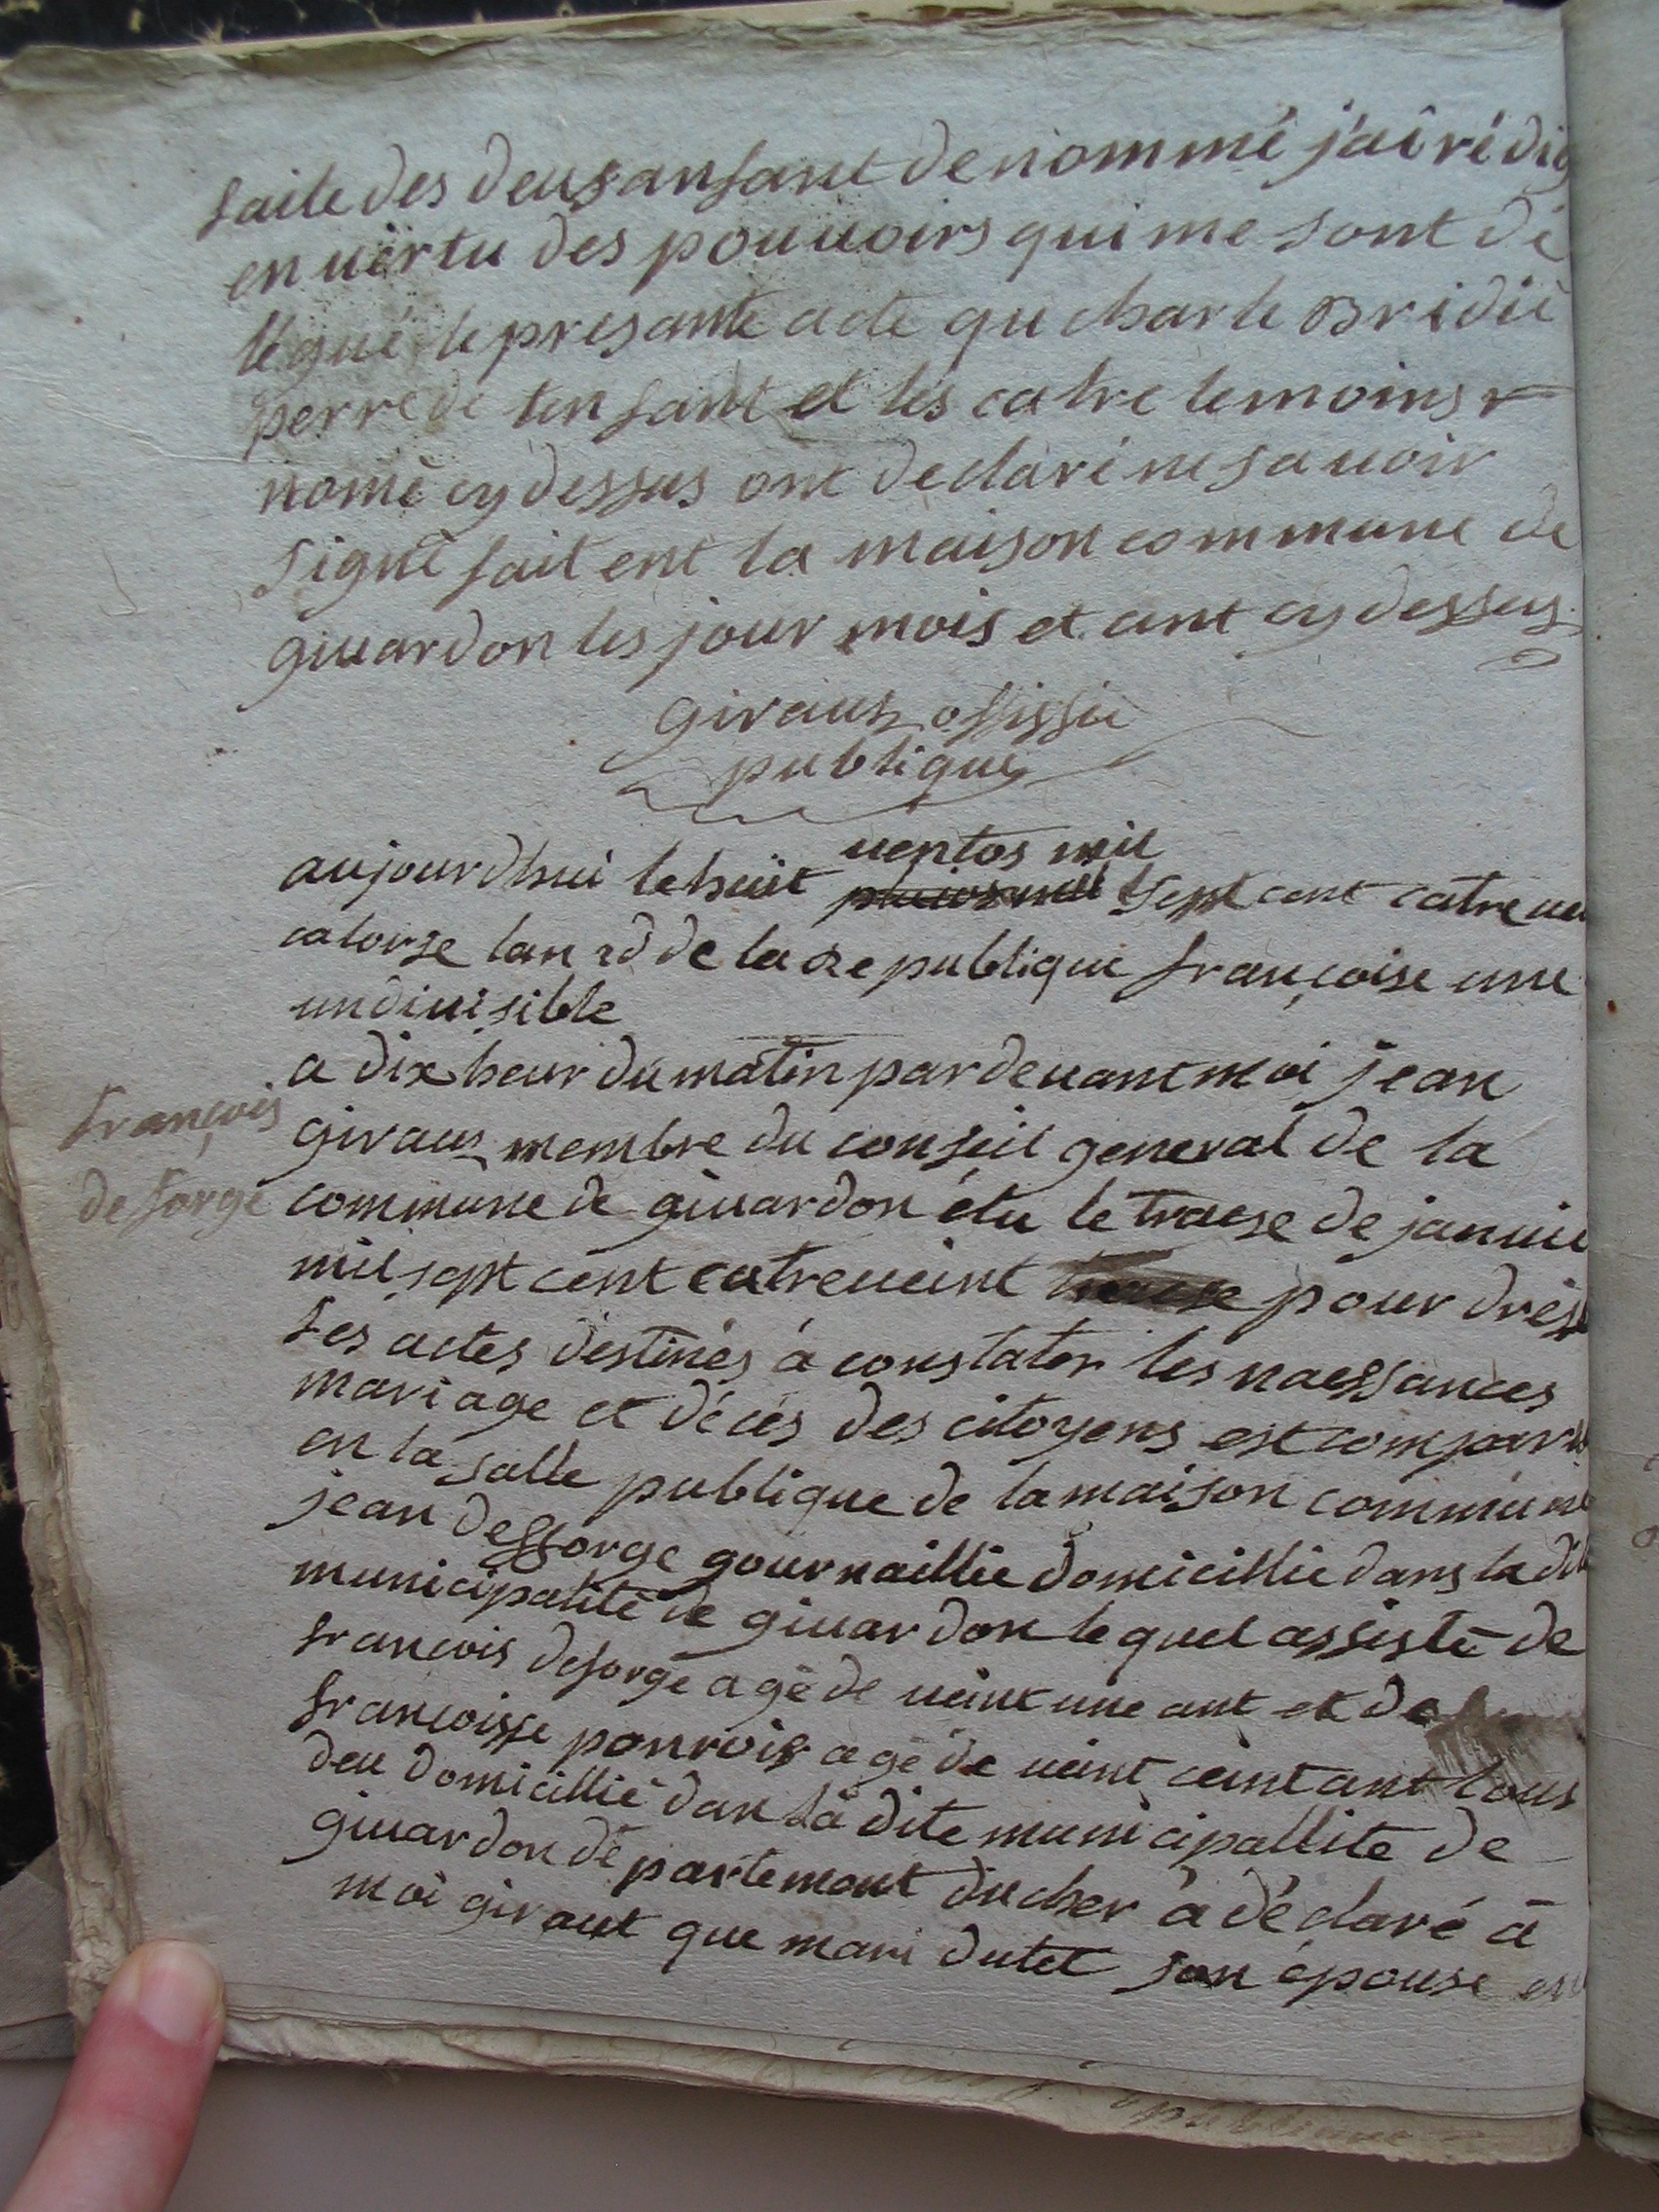 faite des deus anfant denommé j'ai rédig
en uertu des pouuoirs qui me sont dé
légué le presante acte qu charle Bridié
perre de lenfant et les catre temoins
nomé cy dessus ont declaré ne sauoir
signé fait ent la maison commune de
giuardon les jour mois et ant cy dessus
giraus offissié
publique
uentos mil
aujourdhui le huit sept cent catre ue
catorse lan 2d de la Republique françoise une
undiuisible
a dix heur du matin par deuant moi jean
giraus membre du conseil general de la
commune de giuardon élu le traese de januie
mil sept cent catreueint pour dress
les actes destinés à constater les naessances
mariage et décés des citoyens est comparu
en la salle publique de la maison commune
jean deforge gournaillié domicillié dans la dit
municipalité de giuardon le quel assisté de
françois deforge agé de ueint une ant et de
françoisse agé de ueint ceint ant tous
deu domicillié dan la dite municipallité de
giuardon departemant du cher a déclaré à
moi giraut que mari dutet son épouse
françois
deforge